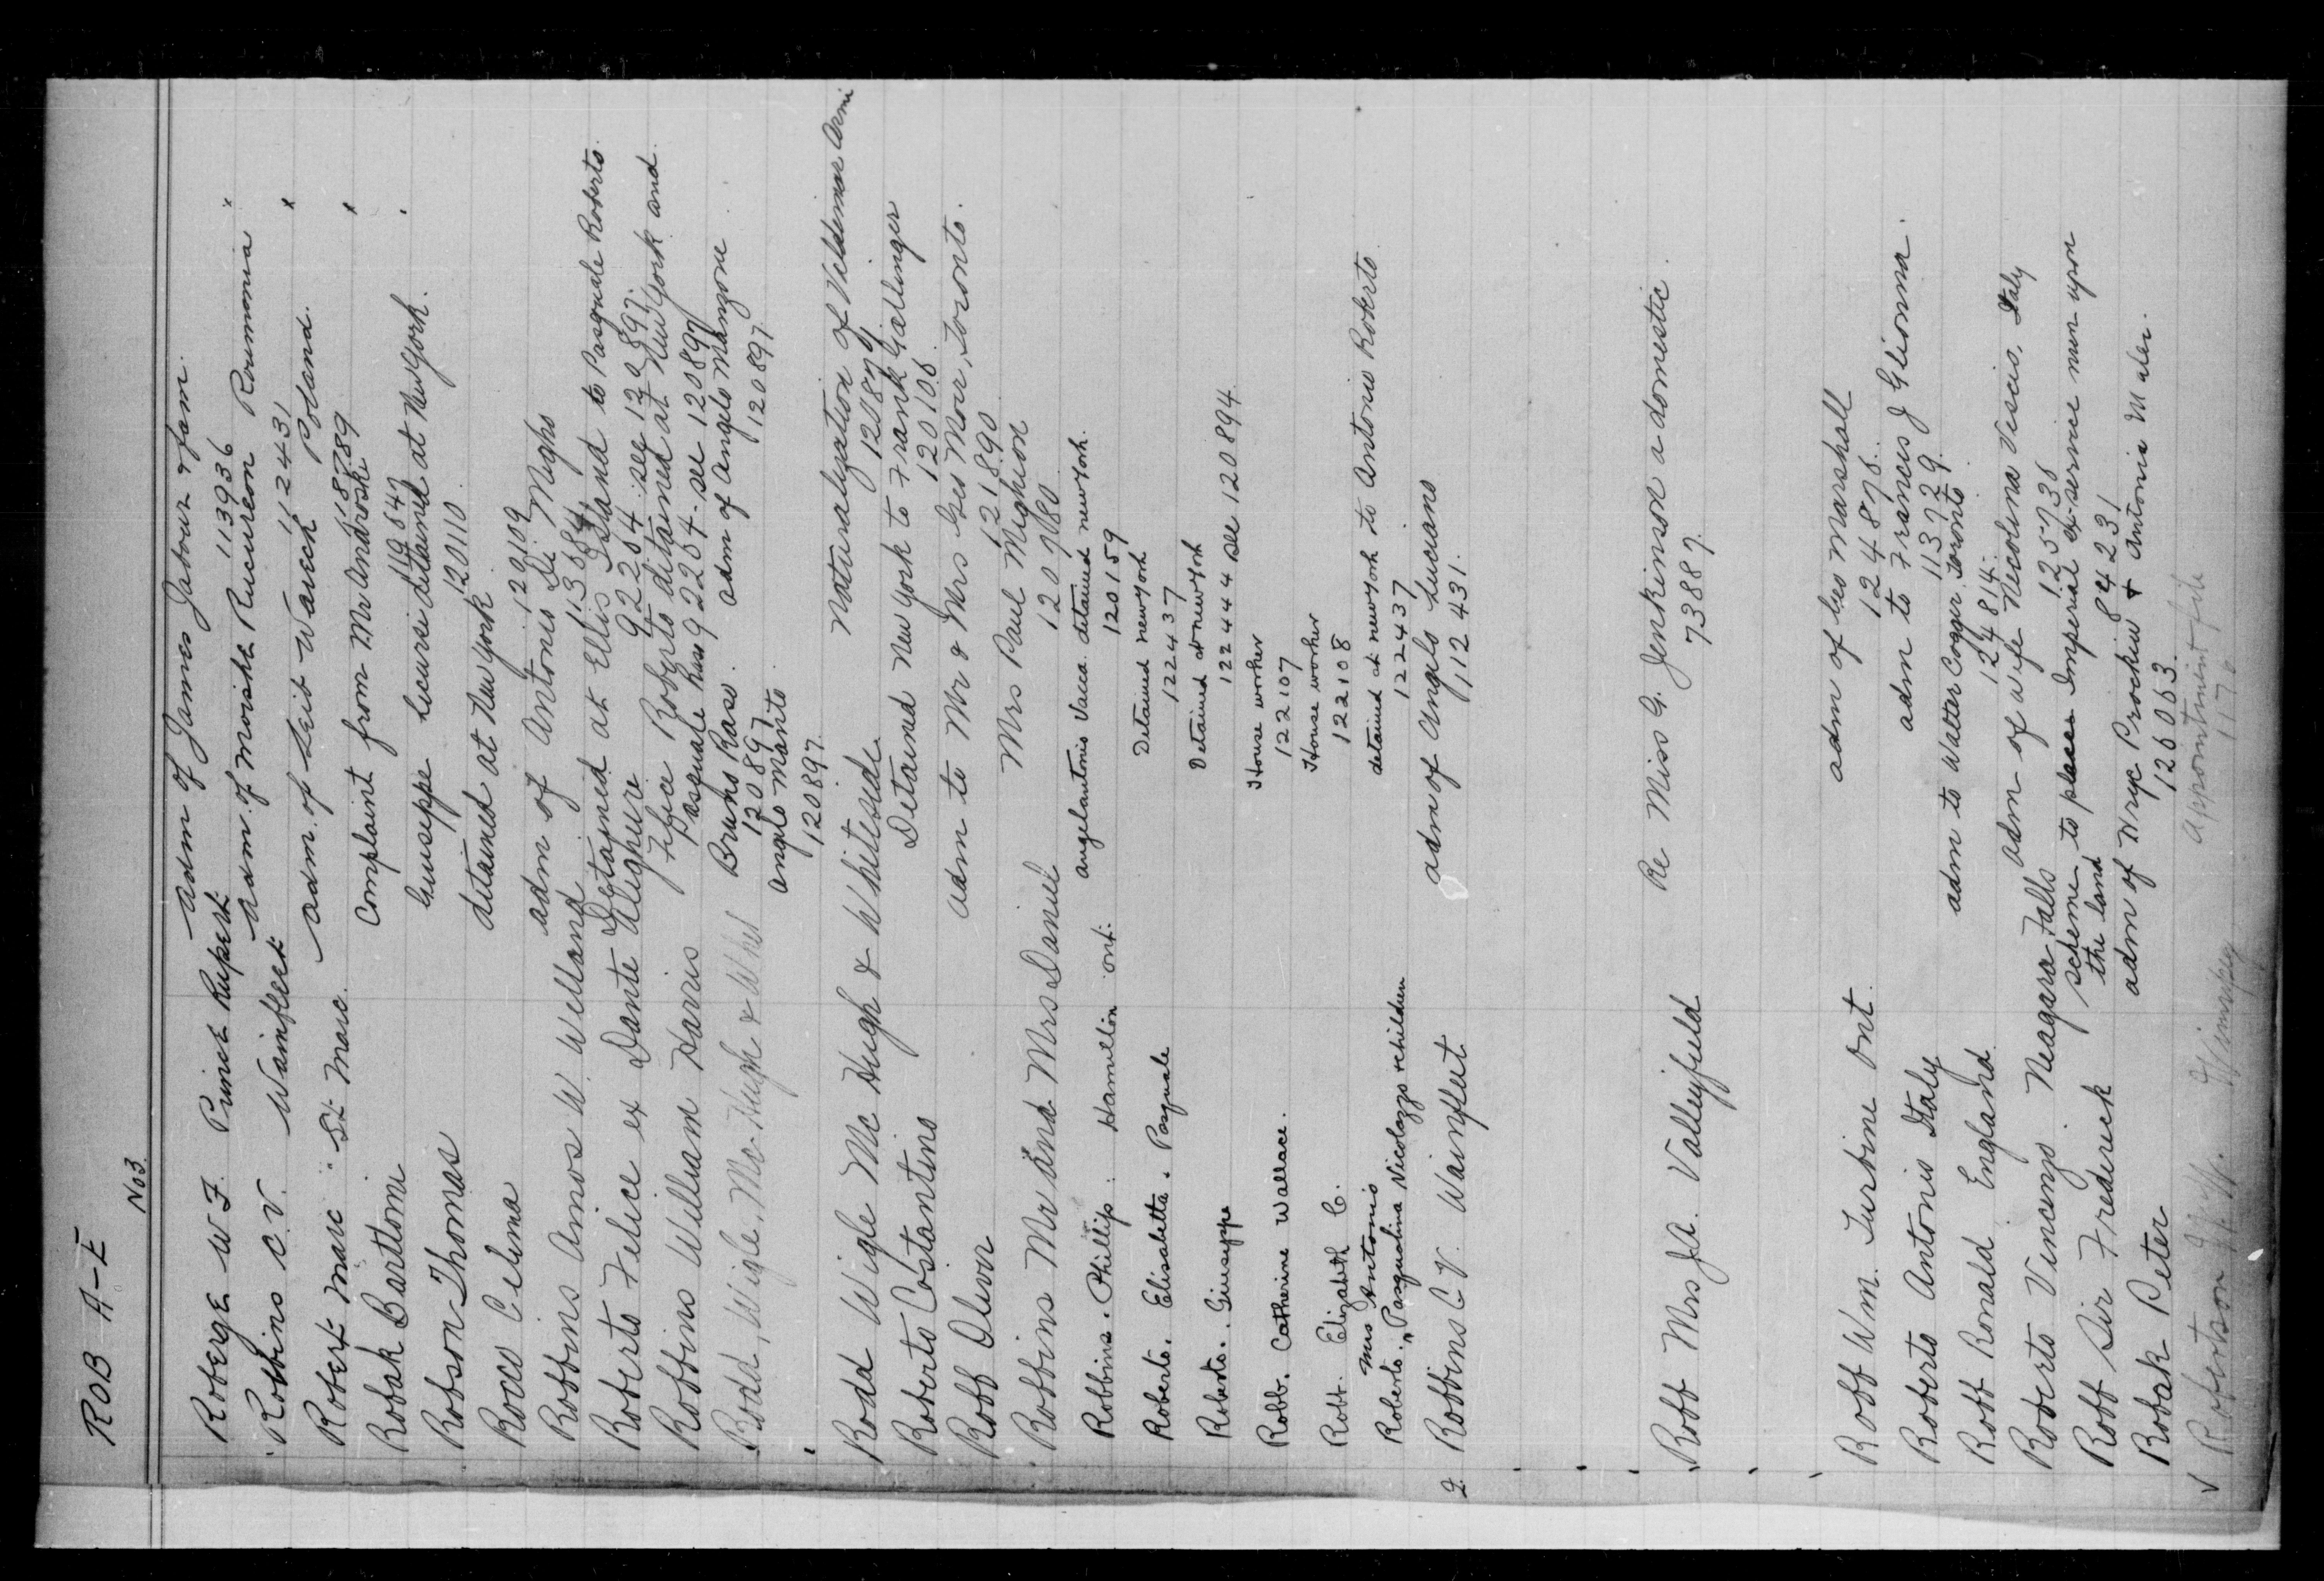 ROB A-E
No 3.
Roberge W F. Prince Rupert adm of James Jabour & fam.
113936
Robbins C.V. Wainfleet adm. of Moishe Rucureon Roumania x
112431
Robert Marc St. Marc. adm. of Leib Wavech Poland. x
118789
Robak Bartlomi Complaint from Mr Androski x
116847
Giuseppe Licursi detained at New York.
120110
Robson Thomas detained at New York
120109
Roco Celima
Robbins Amos W. Welland adm of Antonio Di Migho
113684
Roberto Felice ex Dante Alighure Detained at Ellis Island to Pasquale Roberto.
92264 see 120897.
Robbins William Harris Felice Roberto detained at New York and
Pasquale Raso 92264 - see 120897
Rodd, Wigle, McHugh & Whit Bruno Raso. adm of Angelo Manzone
120897 120897
Angelo Manto
120897.
Rodd Wigle McHugh & Whiteside. Naturalization of Vildimar Armi
120874
Roberto Costantino Detained New York to Frank Gallinger
120106
Robb Oliver adm to Mr & Mrs Geo Moir, Toronto.
121890
Robbins Mr and Mrs Daniel Mrs Paul Mighion
120780
Robbins. Phillip. Hamilton ont. angelantonio Vacca. detained new york.
120159
Roberto. Elisabetta. Pasquale Detained new york
122437
Roberto. Giuseppe Detained at new york
122444 see 120894
Robb. Catherine Wallace. House worker
122107
Robb. Elizabeth C. House worker
122108
Mrs Antonio
Roberto. " Pasqualina Nicolazzo & children detained at new york to Antonio Roberto
122437
2. Robbins C.V. Wainfleet adm of Angelo Luciano
112431.
Robb Mrs J.A. Valleyfield Re Miss G. Jenkinson a domestic.
73887.
Robb Wm. Turbine Ont. adm of Leo Marshall
124878.
Roberto Antonio Italy adm to Francis J Glionna.
113729.
Robb Ronald. England adm to Walter Cogger Toronto
124814.
Roberto Vincenzo. Niagara Falls adm of wife Nicolina Viscio, Italy
125738
Robb Sir Frederick scheme to place Imperial ex-service men upon
the land 84231
Robak Peter adm of Wryc Prockiw & Antonia Maler.
126063.
✓ Robertson W. Winnipeg Appointment file
1170